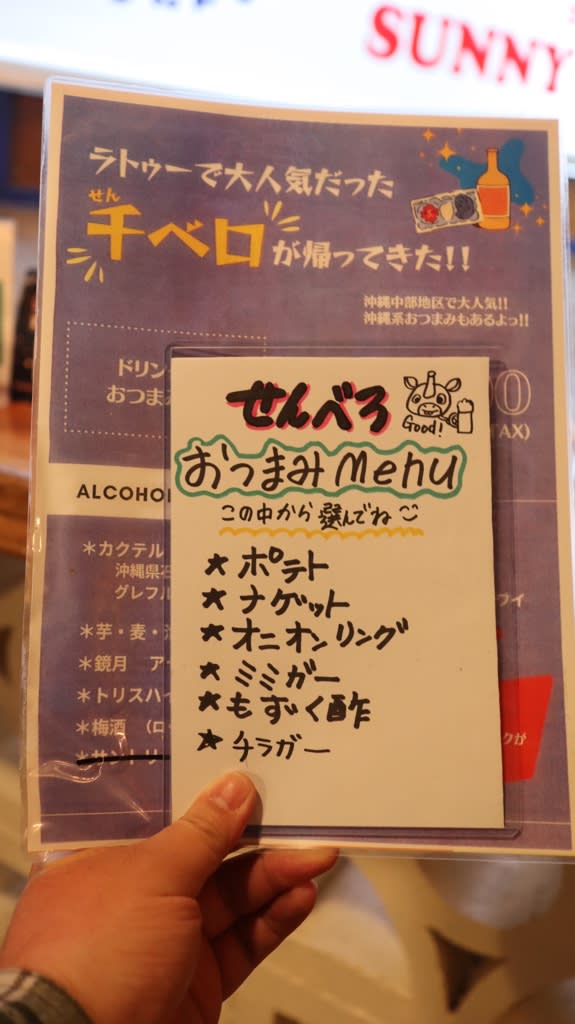 SUNNY
ラトゥーで大人気だった
せん
千ベロが帰ってきた!!
沖縄中部地区で大人気!!
沖縄系おつまみもあるよっ!!
ドリン
おつま
TAX)
せんべろ
Good!
おつまみMenu
この中から選んでね
ALCOHO
*カクテル
沖縄県
グレフル
*芋・麦・
*鏡月 ア
*トリスハイ
*梅酒 (ロッ
*サントリ
★ポテト
★ナゲット
★オニオンリング
★ミミガー
★もずく酢
★チラガー
クが